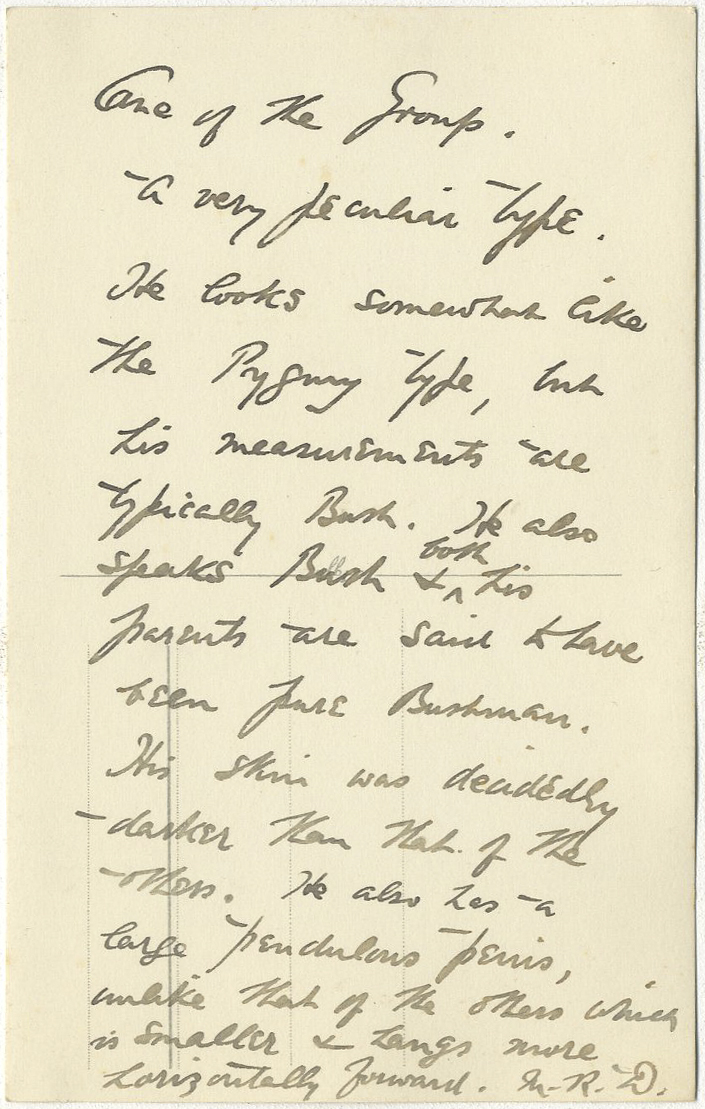 One of the Group.
A very peculiar type.
He looks somewhat like
the Pygmy type, but
his measurements are
typically Bush. He also
speaks Bush & both his
parents are said to have
been pure Bushman.
His skin was decidedly
darker than that of the
others. He also has a
large pendulous penis,
unlike that of the others which
is smaller & hangs more
horizontally forward. M.R.D.